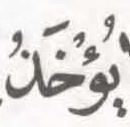 يُؤْخَذُ